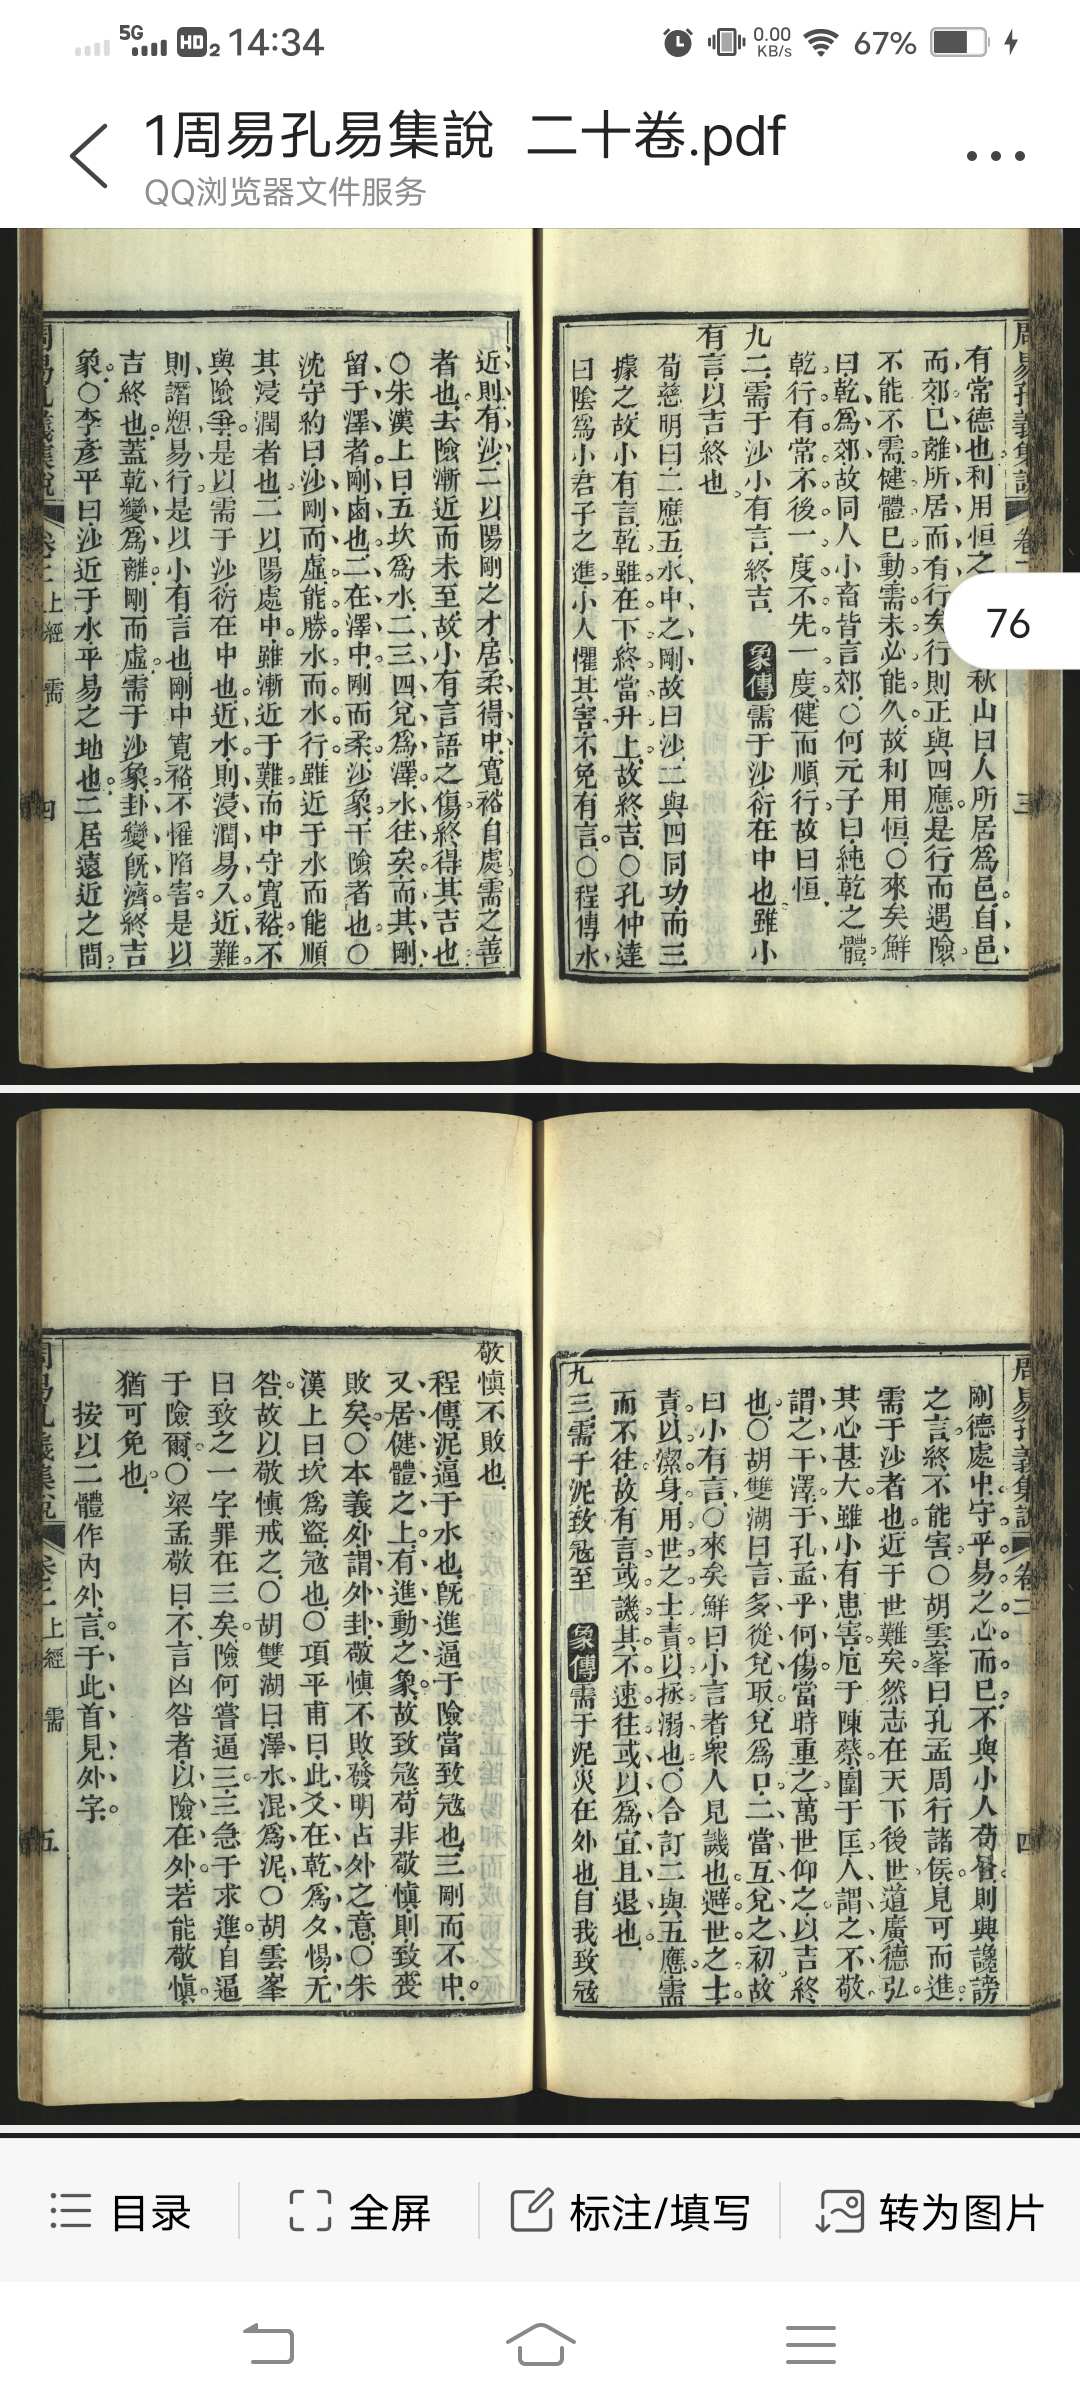 5G HD 2 14:34 0.00 KB/s 67%
1周易孔易集說 二十卷.pdf
QQ浏览器文件服务
76
有常德也利用恒之
秋山曰人所居爲邑自邑
而郊已離所居而有行矣行則正與四應是行而遇險
不能不需健體已動需未必能久故利用恒○來矣鮮
曰乾爲郊故同人小畜皆言郊○何元子曰純乾之體
乾行有常不後一度不先一度健而順行故曰恒
九二需于沙小有言終吉 象傳需于沙衍在中也雖小
有言以吉終也
荀慈明曰二應五水中之剛故曰沙二與四同功而三
據之故小有言乾雖在下終當升上故終吉○孔仲達
曰陰爲小君子之進小人懼其害不免有言○程傳水
近則有沙二以陽剛之才居柔得中寬裕自處需之善
者也去險漸近而未至故小有言語之傷終得其吉也
○朱漢上曰五坎爲水二三四兌爲澤水往矣而其剛
留于澤者剛鹵也二在澤中剛而柔沙象干險者也○
沈守約曰沙剛而虛能勝水而水行雖近于水而能順
其浸潤者也二以陽處中雖漸近于難而中守寬裕不
與險爭是以需于沙衍在中也近水則浸潤易入近難
則譖愬易行是以小有言也剛中寬裕不懼陷害是以
吉終也蓋乾變爲離剛而虛需于沙象卦變旣濟終吉
象○李彥平曰沙近于水平易之地也二居遠近之間
上經 需 四
周易孔義集說 卷二 四
剛德處中守平易之心而已不與小人苟且則興讒謗
之言終不能害○胡雲峯曰孔孟周行諸侯見可而進
需于沙者也近于世難矣然志在天下後世道廣德弘
其心甚大雖小有患害厄于陳蔡圍于匡人謂之不敬
謂之干澤于孔孟乎何傷當時重之萬世仰之以吉終
也○胡雙湖曰言多從兌取兌爲口二當互兌之初故
曰小有言○來矣鮮曰小言者衆人見譏也避世之士
責以潔身用世之士責以拯溺也○合訂二與五應需
而不往故有言或譏其不速往或以爲宜且退也
九三需于泥致寇至 象傳需于泥災在外也自我致寇
敬愼不敗也
程傳泥逼于水也旣進逼于險當致寇也三剛而不中
又居健體之上有進動之象故致寇苟非敬愼則致喪
敗矣○本義外謂外卦敬愼不敗發明占外之意○朱
漢上曰坎爲盜寇也○項平甫曰此爻在乾爲夕惕无
咎故以敬愼戒之○胡雙湖曰澤水混爲泥○胡雲峯
曰致之一字罪在三矣險何嘗逼三三急于求進自逼
于險爾○梁孟敬曰不言凶咎者以險在外若能敬愼
猶可免也
按以二體作內外言于此首見外字
上經 需 五
目录 全屏 标注/填写 转为图片